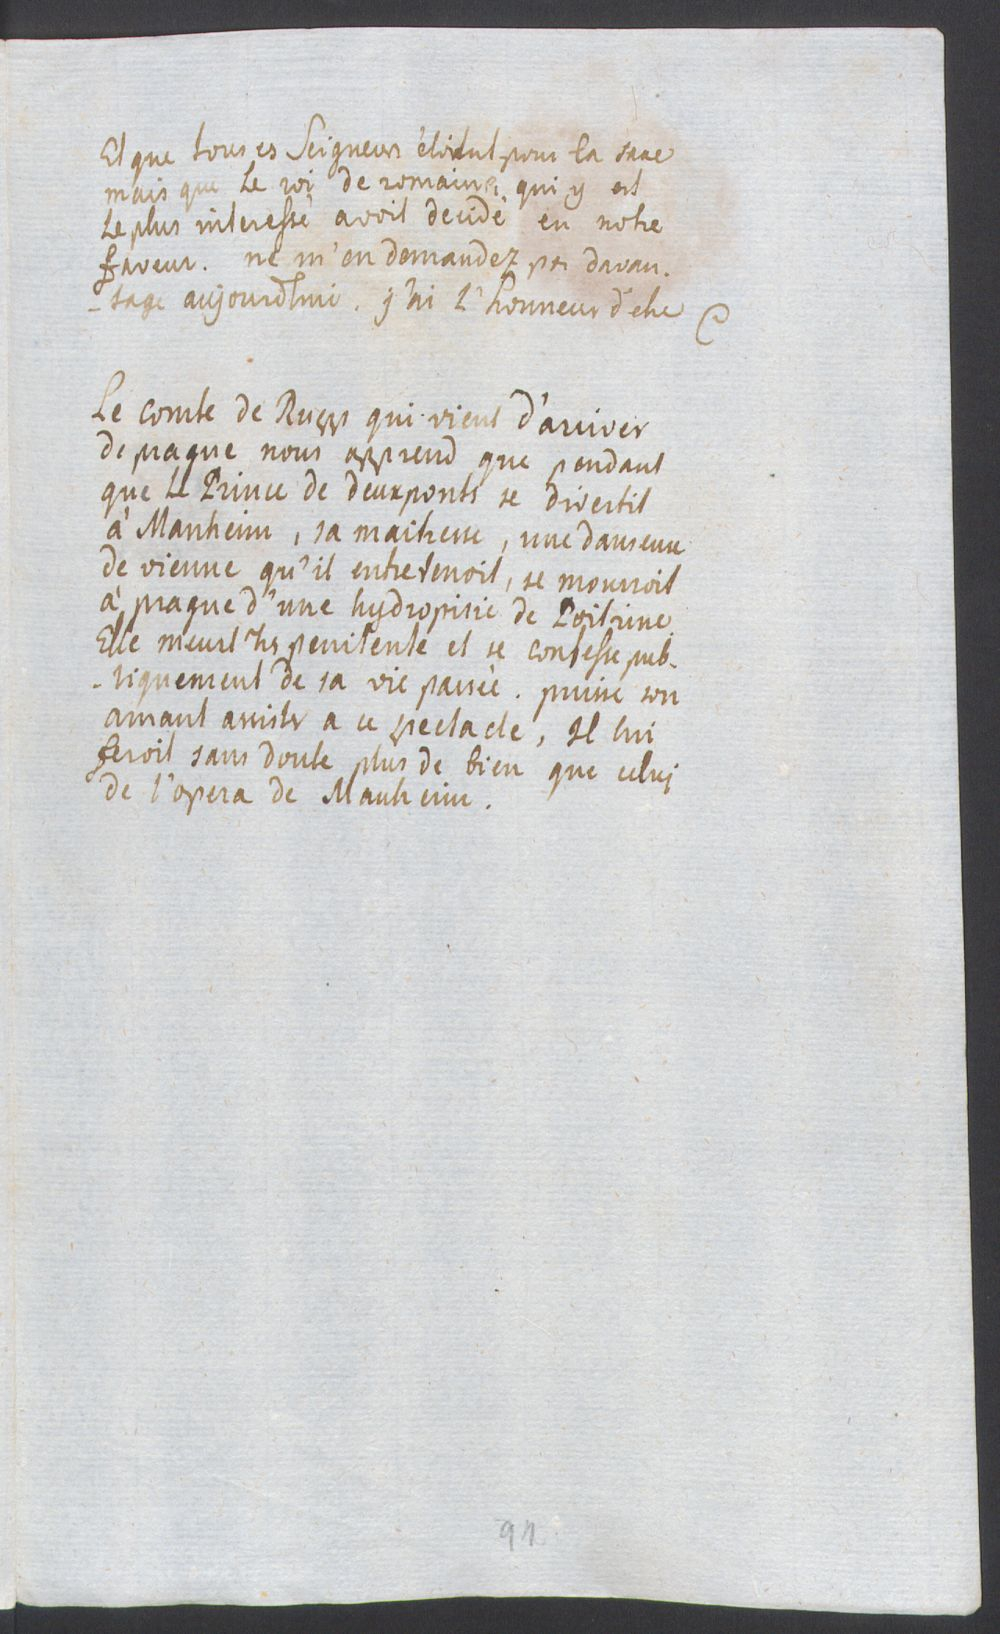 Et que tous es Seigneurs étoient pour la saxe
mais que Le roi de romains, qui y est
Le plus interessé avoit decidé en notre
faveur. ne m'en demandez pas davan-
-tage aujourd'hui. j'ai l'honneur d'etre

Le comte de qui vient d'arriver
de prague nous apprend que pendant
que Le Prince de deuxponts se divertit
à Manheim, sa maitresse, une danseuse
de vienne qu'il entretenoit, se mouroit
à prague d'une hydropisie de Poitrine.
Elle meurt trs penitente et se confesse pub-
-liquement de sa vie passée. puisse son
amant assister a ce spectacle, Il lui
feroit sans doute plus de bien que celui
de l'opera de Manheim.
91